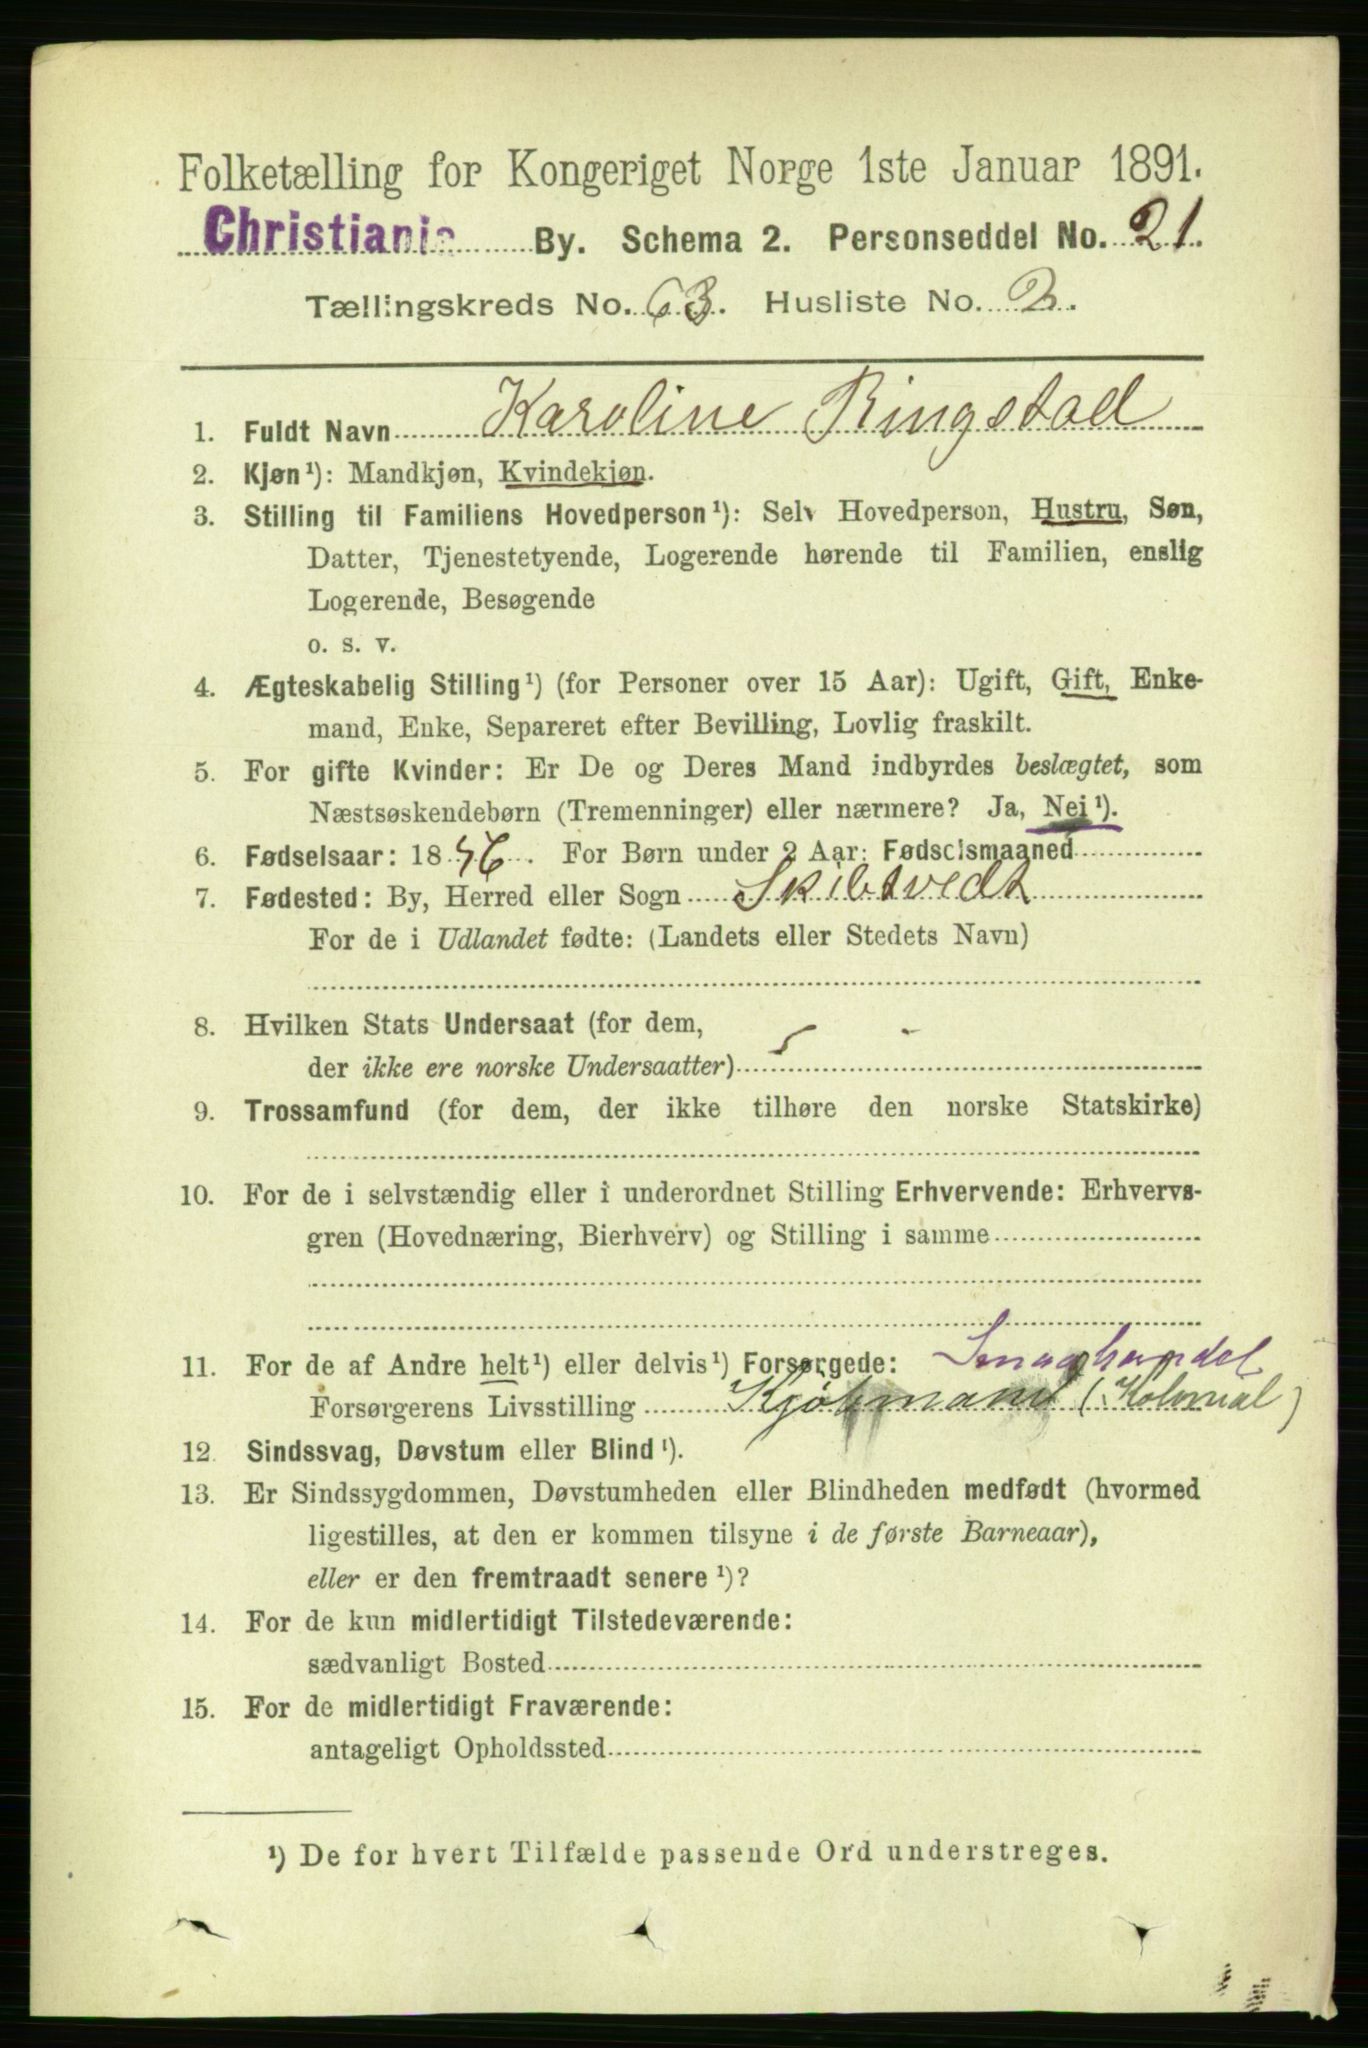 Folketælling for Kongeriget Norge 1ste Januar 1891.
Christiania By. Schema 2. Personseddel No. 21.
Tællingskreds No. 63. Husliste No. 2.
1. Fuldt Navn Karoline Ringstad
2. Kjøn¹): Mandkjøn, Kvindekjøn.
3. Stilling til Familiens Hovedperson¹): Selv Hovedperson, Hustru, Søn,
Datter, Tjenestetyende, Logerende hørende til Familien, enslig
Logerende, Besøgende
o. s. v.
4. Ægteskabelig Stilling¹) (for Personer over 15 Aar): Ugift, Gift, Enke-
mand, Enke, Separeret efter Bevilling, Lovlig fraskilt.
5. For gifte Kvinder: Er De og Deres Mand indbyrdes beslægtet, som
Næstsøskendebørn (Tremenninger) eller nærmere? Ja, Nei¹).
6. Fødselsaar: 1856. For Børn under 2 Aar: Fødselsmaaned
7. Fødested: By, Herred eller Sogn Skibtvedt
For de i Udlandet fødte: (Landets eller Stedets Navn)
8. Hvilken Stats Undersaat (for dem,
der ikke ere norske Undersaatter)
9. Trossamfund (for dem, der ikke tilhøre den norske Statskirke)
10. For de i selvstændig eller i underordnet Stilling Erhvervende: Erhvervs-
gren (Hovednæring, Bierhverv) og Stilling i samme
11. For de af Andre helt¹) eller delvis¹) Forsørgede: Smaahandel
Forsørgerens Livsstilling Kjøbmand (Kolonial)
12. Sindssvag, Døvstum eller Blind¹).
13. Er Sindssygdommen, Døvstumheden eller Blindheden medfødt (hvormed
ligestilles, at den er kommen tilsyne i de første Barneaar),
eller er den fremtraadt senere¹)?
14. For de kun midlertidigt Tilstedeværende:
sædvanligt Bosted
15. For de midlertidigt Fraværende:
antageligt Opholdssted
¹) De for hvert Tilfælde passende Ord understreges.